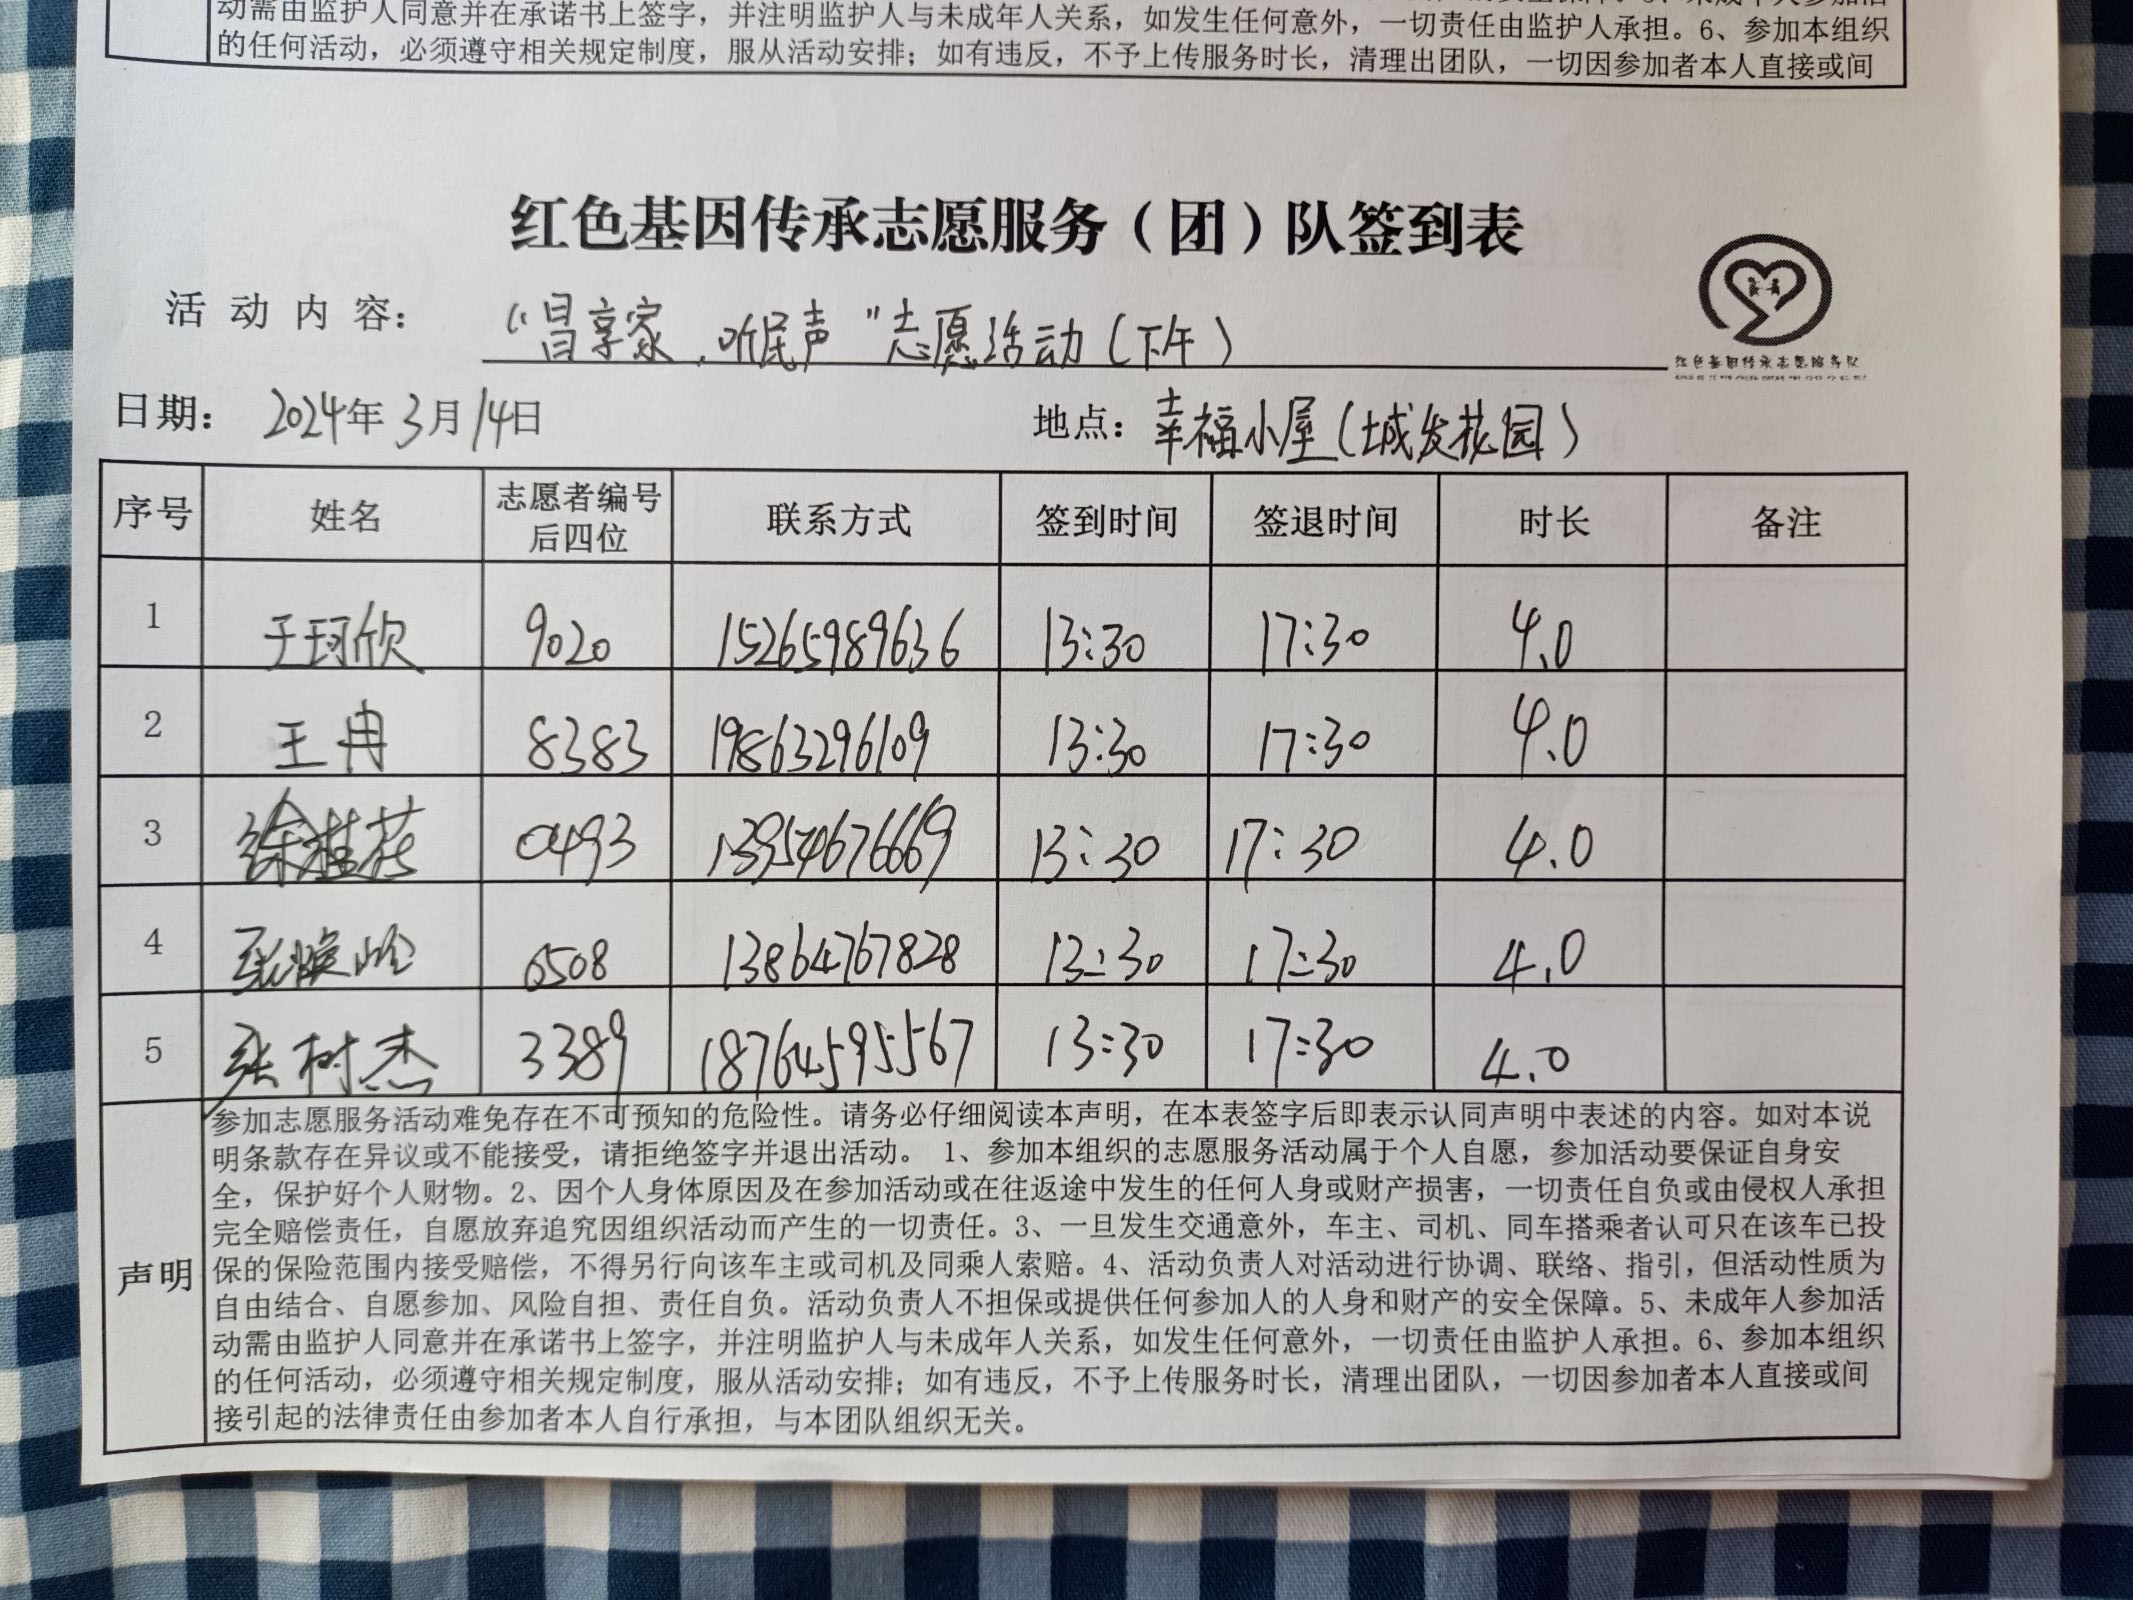 动需由监护人同意并在承诺书上签字，并注明监护人与未成年人关系，如发生任何意外，一切责任由监护人承担。6、参加本组织
的任何活动，必须遵守相关规定制度，服从活动安排；如有违反，不予上传服务时长，清理出团队，一切因参加者本人直接或间
红色基因传承志愿服务（团）队签到表
活动内容： “昌享家，听民声”志愿活动（下午）
红色基因传承志愿服务队
日期： 2024年3月14日 地点：幸福小屋（城发花园）
序号 姓名 志愿者编号后四位 联系方式 签到时间 签退时间 时长 备注
1 于珂欣 9020 15265989636 13:30 17:30 4.0
2 王冉 8383 19863296109 13:30 17:30 4.0
3 徐桂花 0493 13954676669 13:30 17:30 4.0
4 张焕岭 6508 13864767828 13:30 17:30 4.0
5 张树杰 3389 18764595567 13:30 17:30 4.0
声明
参加志愿服务活动难免存在不可预知的危险性。请务必仔细阅读本声明，在本表签字后即表示认同声明中表述的内容。如对本说
明条款存在异议或不能接受，请拒绝签字并退出活动。 1、参加本组织的志愿服务活动属于个人自愿，参加活动要保证自身安
全，保护好个人财物。2、因个人身体原因及在参加活动或在往返途中发生的任何人身或财产损害，一切责任自负或由侵权人承担
完全赔偿责任，自愿放弃追究因组织活动而产生的一切责任。3、一旦发生交通意外，车主、司机、同车搭乘者认可只在该车已投
保的保险范围内接受赔偿，不得另行向该车主或司机及同乘人索赔。4、活动负责人对活动进行协调、联络、指引，但活动性质为
自由结合、自愿参加、风险自担、责任自负。活动负责人不担保或提供任何参加人的人身和财产的安全保障。5、未成年人参加活
动需由监护人同意并在承诺书上签字，并注明监护人与未成年人关系，如发生任何意外，一切责任由监护人承担。6、参加本组织
的任何活动，必须遵守相关规定制度，服从活动安排；如有违反，不予上传服务时长，清理出团队，一切因参加者本人直接或间
接引起的法律责任由参加者本人自行承担，与本团队组织无关。